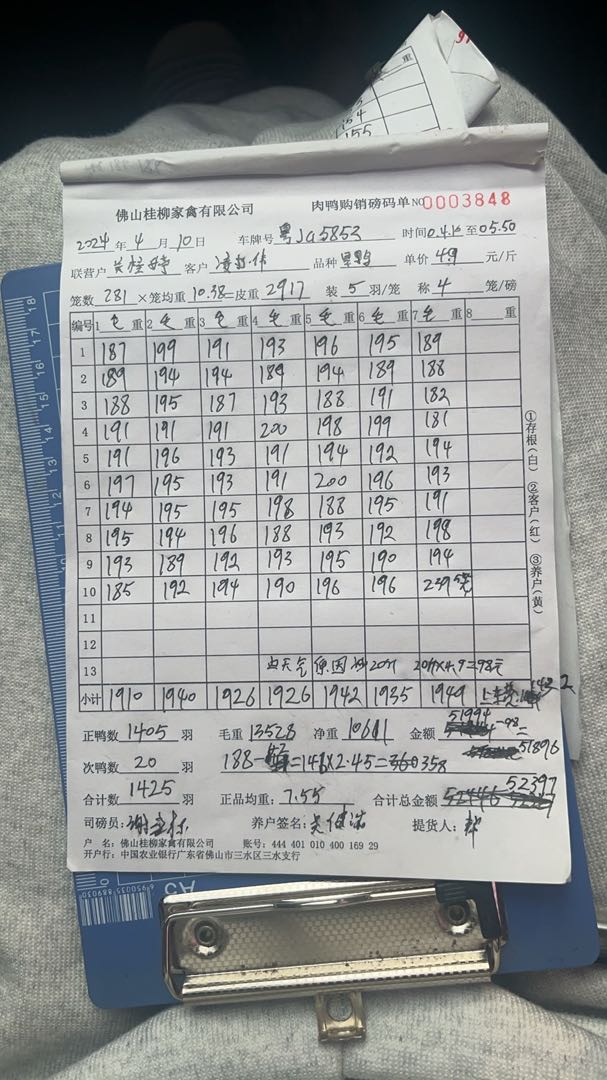 154
155
佛山桂柳家禽有限公司 肉鸭购销磅码单 NO 0003848
2024年4月10日 车牌号 粤JG5853 时间 04.15 至 05.50
联营户 客户 品种 单价 4.9 元/斤
笼数 281 ×笼均重 10.38 皮重 2917 装 5 羽/笼 称 4 笼/磅
编号 1 毛重 2 毛重 3 毛重 4 毛重 5 毛重 6 毛重 7 毛重 8 重
1 187 199 191 193 196 195 189
2 189 194 194 189 194 189 188
3 188 195 187 193 188 191 182
4 191 191 191 200 198 199 181
5 191 196 193 191 194 192 194
6 197 195 193 191 200 196 193
7 194 195 195 198 188 195 191
8 195 194 196 188 193 192 198
9 193 189 192 193 195 190 194
10 185 192 194 190 196 196 239
11
12
13 因天气原因 20斤 20斤×4.9=98元
小计 1910 1940 1926 1926 1942 1935 1949
正鸭数 1405 羽 毛重 13528 净重 10611 金额 51994-98=
51896
次鸭数 20 羽 188- =146×2.45= 358
合计数 1425 羽 正品均重: 7.55 合计总金额 52397
司磅员: 养户签名: 提货人:
户 名: 佛山桂柳家禽有限公司 账号: 444 401 010 400 169 29
开户行: 中国农业银行广东省佛山市三水区三水支行
①存根(白) ②客户(红) ③养户(黄)